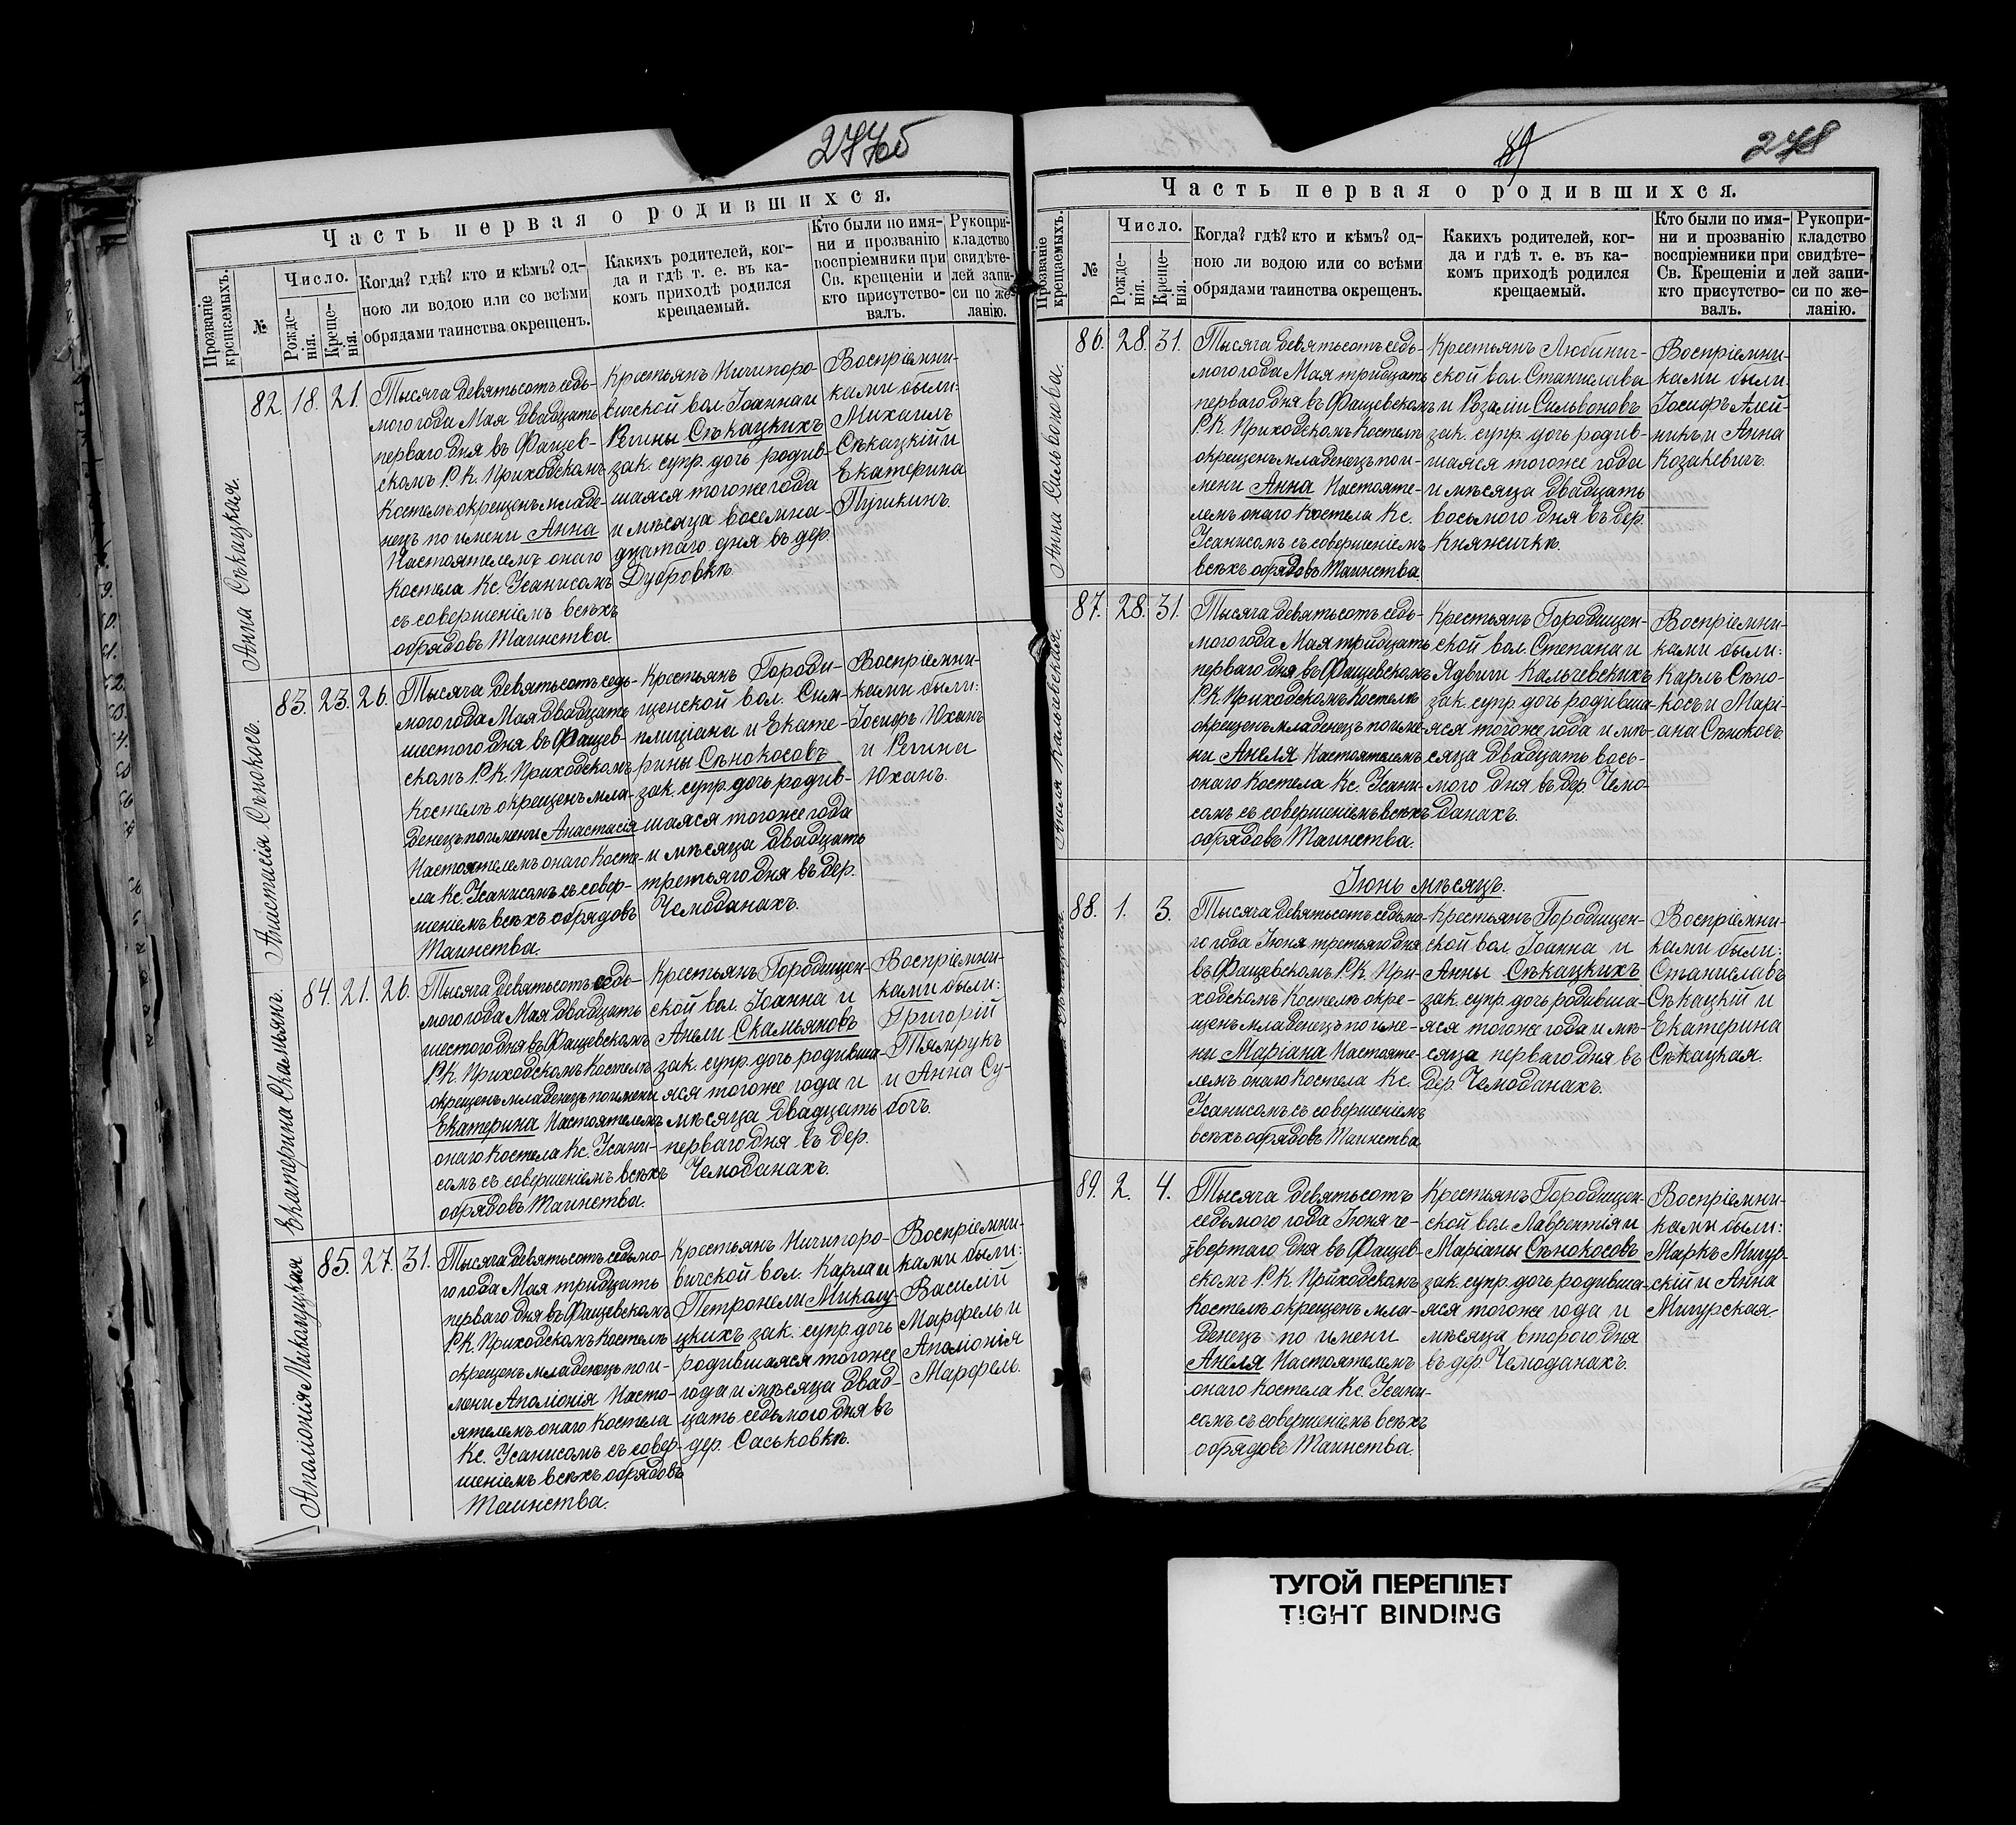 277об
Часть первая о родившихся.
Прозваніе крещаемыхъ.
№
Число.
Рожде-
нія.
Креще-
нія.
Когда? гдѣ? кто и кѣмъ? од-
ною ли водою или со всѣми
обрядами таинства окрещенъ.
Какихъ родителей, ког-
да и гдѣ т. е. въ ка-
комъ приходѣ родился
крещаемый.
Кто были по имя-
ни и прозванію
воспріемники при
Св. крещеніи и
кто присутство-
валъ.
Рукопри-
кладство
свидѣте-
лей запи-
си по же-
ланію.
Анна Сѣкацкая.
82. 18. 21.
Тысяча девятьсотъ седь-
мого года Мая двадцать
перваго дня въ Фащев-
скомъ Р.К. Приходскомъ
Костелѣ окрещенъ младе-
нецъ по имени Анна
Настоятелемъ онаго
Костела Кс. Усанисомъ
съ совершеніемъ всѣхъ
обрядовъ Таинства.
Крестьянъ Ничипоро-
вичской вол. Іоанна и
Регины Сѣкацкихъ
зак. супр. дочь родив-
шаяся того же года
и мѣсяца восемна-
дцатаго дня въ дер.
Дубровкѣ.
Воспріемни-
ками были:
Михаилъ
Сѣкацкій и
Екатерина
Пушкинъ.
Анастасія Сѣнокосъ.
83. 23. 26.
Тысяча девятьсотъ седь-
мого года Мая двадцать
шестого дня въ Фащев-
скомъ Р.К. Приходскомъ
Костелѣ окрещенъ мла-
денецъ по имени Анастасія
Настоятелемъ онаго Косте-
ла Кс. Усанисомъ съ совер-
шеніемъ всѣхъ обрядовъ
Таинства.
Крестьянъ Городи-
щенской вол. Сим-
плиціана и Екате-
рины Сѣнокосовъ
зак. супр. дочь родив-
шаяся того же года
и мѣсяца двадцать
третьяго дня въ дер.
Чемоданахъ.
Воспріемни-
ками были:
Іосифъ Юханъ
и Регина
Юханъ.
Екатерина Скамьянъ.
84. 21. 26.
Тысяча девятьсотъ седь-
мого года Мая двадцать
шестого дня въ Фащевскомъ
Р.К. Приходскомъ Костелѣ
окрещенъ младенецъ по имени
Екатерина Настоятелемъ
онаго Костела Кс. Усани-
сомъ съ совершеніемъ всѣхъ
обрядовъ Таинства.
Крестьянъ Городищен-
ской вол. Іоанна и
Анели Скамьяновъ
зак. супр. дочь родивша-
яся того же года и
мѣсяца двадцать
перваго дня въ дер.
Чемоданахъ.
Воспріемни-
ками были:
Григорій
Тямрукъ
и Анна Су-
бочъ.
Аполіонія Микалуцкая
85. 27. 31.
Тысяча девятьсотъ седьмо-
го года Мая тридцать
перваго дня въ Фащевскомъ
Р.К. Приходскомъ Костелѣ
окрещенъ младенецъ по и-
мени Аполіонія Насто-
ятелемъ онаго Костела
Кс. Усанисомъ съ совер-
шеніемъ всѣхъ обрядовъ
Таинства.
Крестьянъ Ничипоро-
вичской вол. Карла и
Петронели Микалу-
цкихъ зак. супр. дочь
родившаяся того же
года и мѣсяца двад-
цать седьмого дня въ
дер. Саськовкѣ.
Воспріемни-
ками были:
Василій
Марфель и
Аполіонія
Марфель.
89
278
Часть первая о родившихся.
Прозваніе крещаемыхъ.
№
Число.
Рожде-
нія.
Креще-
нія.
Когда? гдѣ? кто и кѣмъ? од-
ною ли водою или со всѣми
обрядами таинства окрещенъ.
Какихъ родителей, ког-
да и гдѣ т. е. въ ка-
комъ приходѣ родился
крещаемый.
Кто были по имя-
ни и прозванію
воспріемники при
Св. Крещеніи и
кто присутство-
валъ.
Рукопри-
кладство
свидѣте-
лей запи-
си по же-
ланію.
Анна Сильвонова.
86. 28. 31.
Тысяча девятьсотъ седь-
мого года Мая тридцать
перваго дня въ Фащевскомъ
Р.К. Приходскомъ Костелѣ
окрещенъ младенецъ по и-
мени Анна Настояте-
лемъ онаго Костела Кс.
Усанисомъ съ совершеніемъ
всѣхъ обрядовъ Таинства.
Крестьянъ Любинич-
ской вол. Станислава
и Розаліи Сильвоновъ
зак. супр. дочь родив-
шаяся того же года
и мѣсяца двадцать
восьмого дня въ дер.
Княжичкѣ.
Воспріемни-
ками были
Іосифъ Алей-
никъ и Анна
Козакевичъ.
Анеля Кальчевская.
87. 28. 31.
Тысяча девятьсотъ седь-
мого года Мая тридцать
перваго дня въ Фащевскомъ
Р.К. Приходскомъ Костелѣ
окрещенъ младенецъ по име-
ни Анеля Настоятелемъ
онаго Костела Кс. Усани-
сомъ съ совершеніемъ всѣхъ
обрядовъ Таинства.
Крестьянъ Городищен-
ской вол. Степана и
Ядвиги Кальчевскихъ
зак. супр. дочь родивша-
яся того же года и мѣ-
сяца двадцать вось-
мого дня въ дер. Чемо-
данахъ.
Воспріемни-
ками были:
Карлъ Сѣно-
косъ и Марі-
ана Сѣнокосъ.
Іюнь мѣсяцъ.
88. 1. 3.
Тысяча девятьсотъ седьмо-
го года Іюня третьяго дня
въ Фащевскомъ Р.К. При-
ходскомъ Костелѣ окре-
щенъ младенецъ по име-
ни Маріана Настояте-
лемъ онаго Костела Кс.
Усанисомъ съ совершеніемъ
всѣхъ обрядовъ Таинства
Крестьянъ Городищен-
ской вол. Іоанна и
Анны Сѣкацкихъ
зак. супр. дочь родивша-
яся того же года и мѣ-
сяца перваго дня въ
дер. Чемоданахъ.
Воспріемни-
ками были:
Станиславъ
Сѣкацкій и
Екатерина
Сѣкацкая.
89. 2. 4.
Тысяча девятьсотъ
седьмого года Іюня че-
твертаго дня въ Фащев-
скомъ Р.К. Приходскомъ
Костелѣ окрещенъ мла-
денецъ по имени
Анеля Настоятелемъ
онаго Костела Кс. Усани-
сомъ съ совершеніемъ всѣхъ
обрядовъ Таинства.
Крестьянъ Городищен-
ской вол. Лаврентія и
Маріаны Сѣнокосовъ
зак. супр. дочь родивша-
яся того же года и
мѣсяца второго дня
въ дер. Чемоданахъ.
Воспріемни-
ками были:
Маркъ Мигур-
скій и Анна
Мигурская.
ТУГОЙ ПЕРЕПЛЕТ
TIGHT BINDING